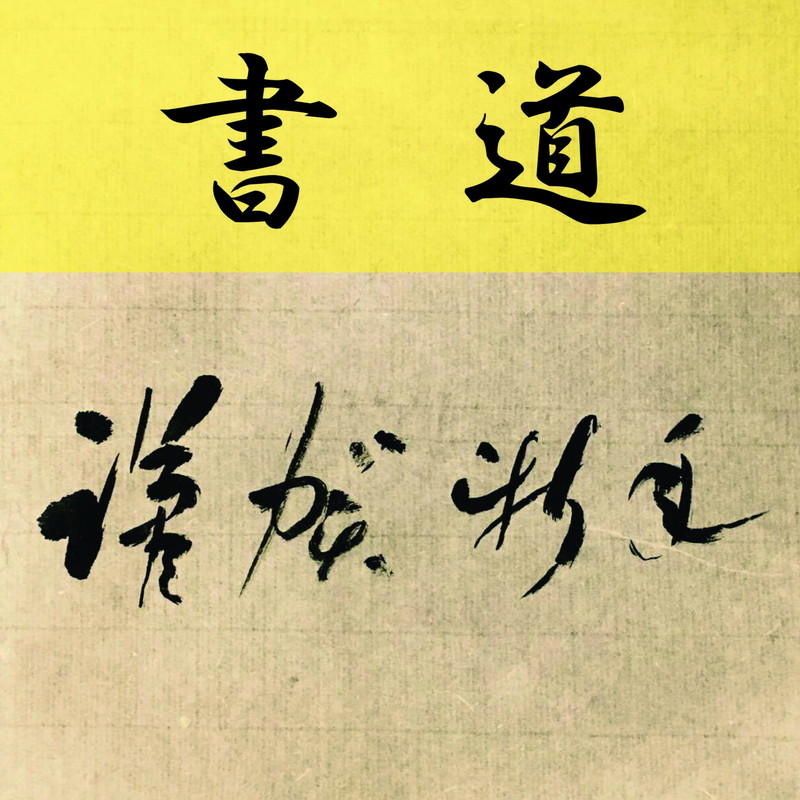 書道
謹賀新